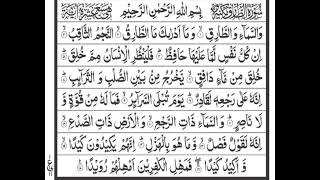 سُورَةُ الطَّارِقِ مَكِّيَّةٌ بِسْمِ اللهِ الرَّحْمٰنِ الرَّحِيْمِ
وَالسَّمَآءِ وَالطَّارِقِ ۙ وَمَآ اَدْرٰىكَ مَا الطَّارِقُ ۙ النَّجْمُ الثَّاقِبُ ۙ
اِنْ كُلُّ نَفْسٍ لَّمَّا عَلَيْهَا حَافِظٌ ؕ فَلْيَنْظُرِ الْاِنْسَانُ مِمَّ خُلِقَ ؕ
خُلِقَ مِنْ مَّآءٍ دَافِقٍ ۙ يَّخْرُجُ مِنْۢ بَيْنِ الصُّلْبِ وَالتَّرَآئِبِ ؕ
اِنَّهٗ عَلٰى رَجْعِهٖ لَقَادِرٌ ؕ يَوْمَ تُبْلَى السَّرَآئِرُ ۙ فَمَا لَهٗ مِنْ قُوَّةٍ وَّ
لَا نَاصِرٍ ؕ وَالسَّمَآءِ ذَاتِ الرَّجْعِ ۙ وَالْاَرْضِ ذَاتِ الصَّدْعِ ۙ
اِنَّهٗ لَقَوْلٌ فَصْلٌ ۙ وَّمَا هُوَ بِالْهَزْلِ ؕ اِنَّهُمْ يَكِيْدُوْنَ كَيْدًا ۙ
وَّاَكِيْدُ كَيْدًا ۚ فَمَهِّلِ الْكٰفِرِيْنَ اَمْهِلْهُمْ رُوَيْدًا